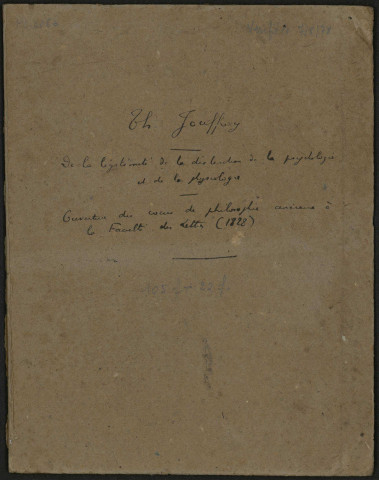 Th Jouffroy
De la légitimité de la distinction de la psychologie
et de la physiologie
Ouverture du cours de philosophie ancienne à
la Faculté des Lettres (1828)